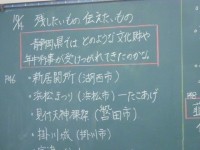 残したいもの 伝えたいもの
静岡県では、どのような文化財や
年中行事が受けつがれてきたのかな
P46 ・新居関所(湖西市)
・浜松まつり(浜松市)ーたこあげ
・見付天神裸祭(磐田市)
・掛川城(掛川市)